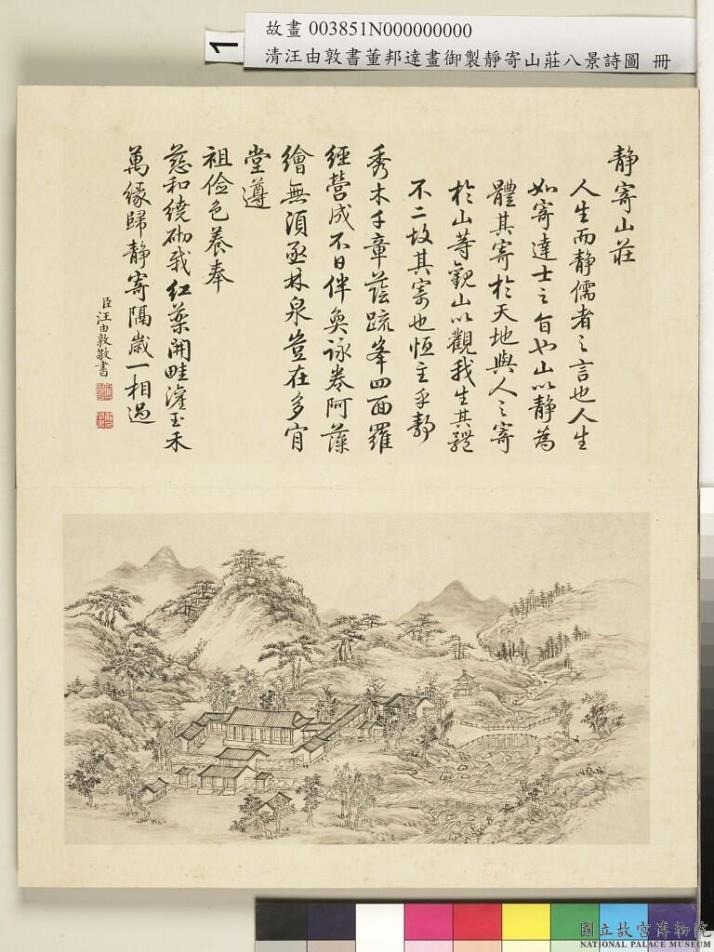 故畫 003851N000000000
清汪由敦書董邦達畫御製靜寄山莊八景詩圖 冊
1
静寄山莊
人生而静儒者之言也人生
如寄達士之旨也山以静為
體其寄於天地與人之寄
於山等觀山以觀我生其體
不二故其寄也恒主乎静
秀木千章蔭疏峯四面羅
經營成不日伴奐詠卷阿藻
繪無須亟林泉豈在多肯
堂遵
祖儉色養奉
慈和繞砌栽紅藥開畦灌玉禾
萬緣歸静寄隔歲一相過
臣汪由敦敬書
國立故宮博物院
NATIONAL PALACE MUSEUM